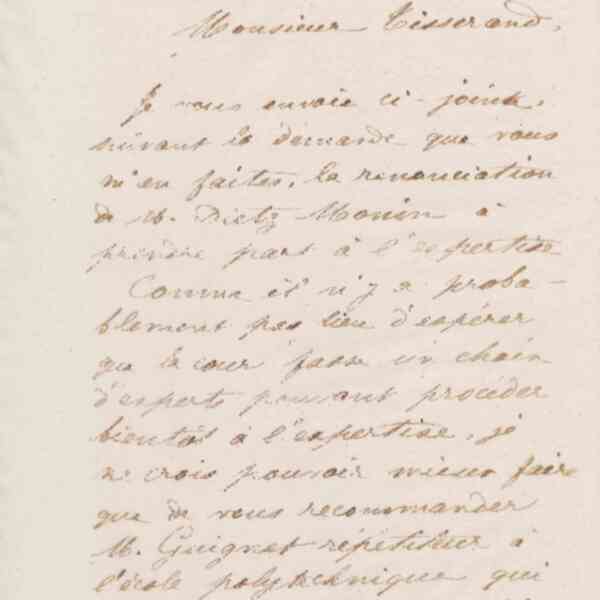 Monsieur Tisserand,
Je vous envoie ci-joint,
suivant la demande que vous
m'en faites, la renonciation
de M. Dietz Monin à
prendre part à l'expertise
Comme il n'y a proba-
blement pas lieu d'espérer
que la cour fasse un choix
d'experts pouvant procéder
bientôt à l'expertise, je
ne crois pouvoir mieux faire
que de vous recommander
M. Guignet répétiteur à
l'école polytechnique qui